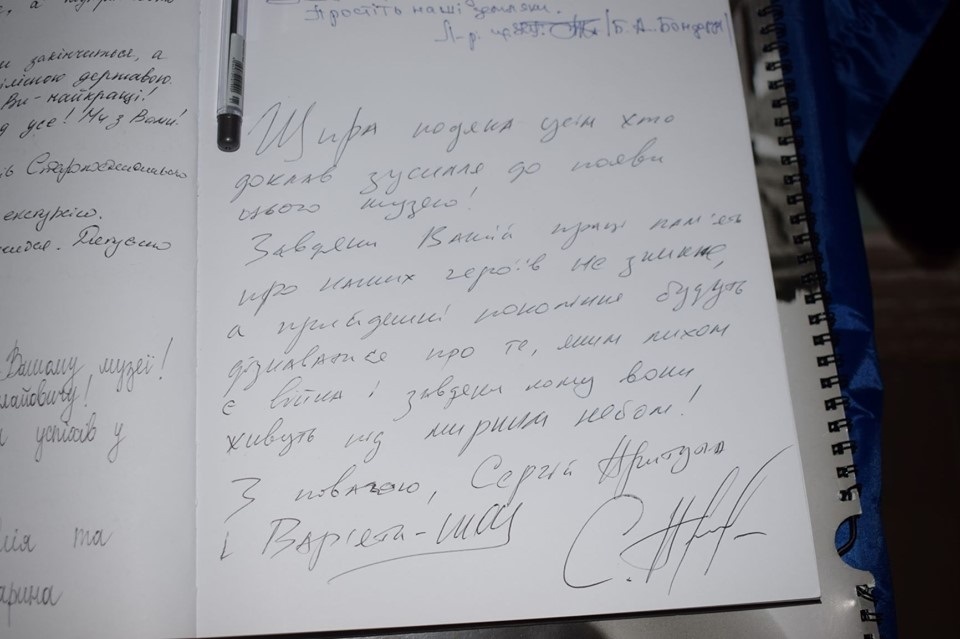 Простіть наші земляки.
/Б. А. Бондар
и закінчиться, а
цілісною державою.
Ви - найкращі!
усе! Ми з Вами!
екскурсію.
Вашому музеї!
лайовичу!
успіхів у
та
Щира подяка усім хто
доклав зусилля до появи
цього музею!
Завдяки Вашій праці пам'ять
про наших героїв не зникне,
а прийдешні покоління будуть
дізнаватися про те, яким лихом
є війна і завдяки кому вони
живуть під мирним небом!
З повагою, Сергій Притула
і Вар'яти-шоу